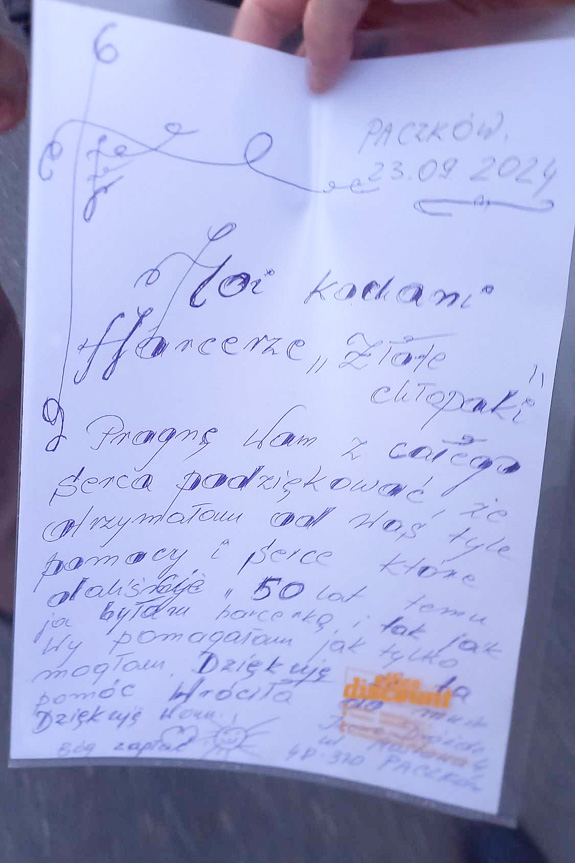 PACZKÓW.
23.09 2024
Moi kochani
Harcerze „Złote
chłopaki"
Pragnę Wam z całego
serca podziękować, że
otrzymałam od Was tyle
pomocy i serce które
50 lat temu
ja byłam harcerką i tak jak
Wy pomagałam jak tylko
mogłam. Dziękuję ta
pomóc Wróciła do mnie
Dziękuję Wam
Bóg zapłać
discount
48-370 PACZKÓW